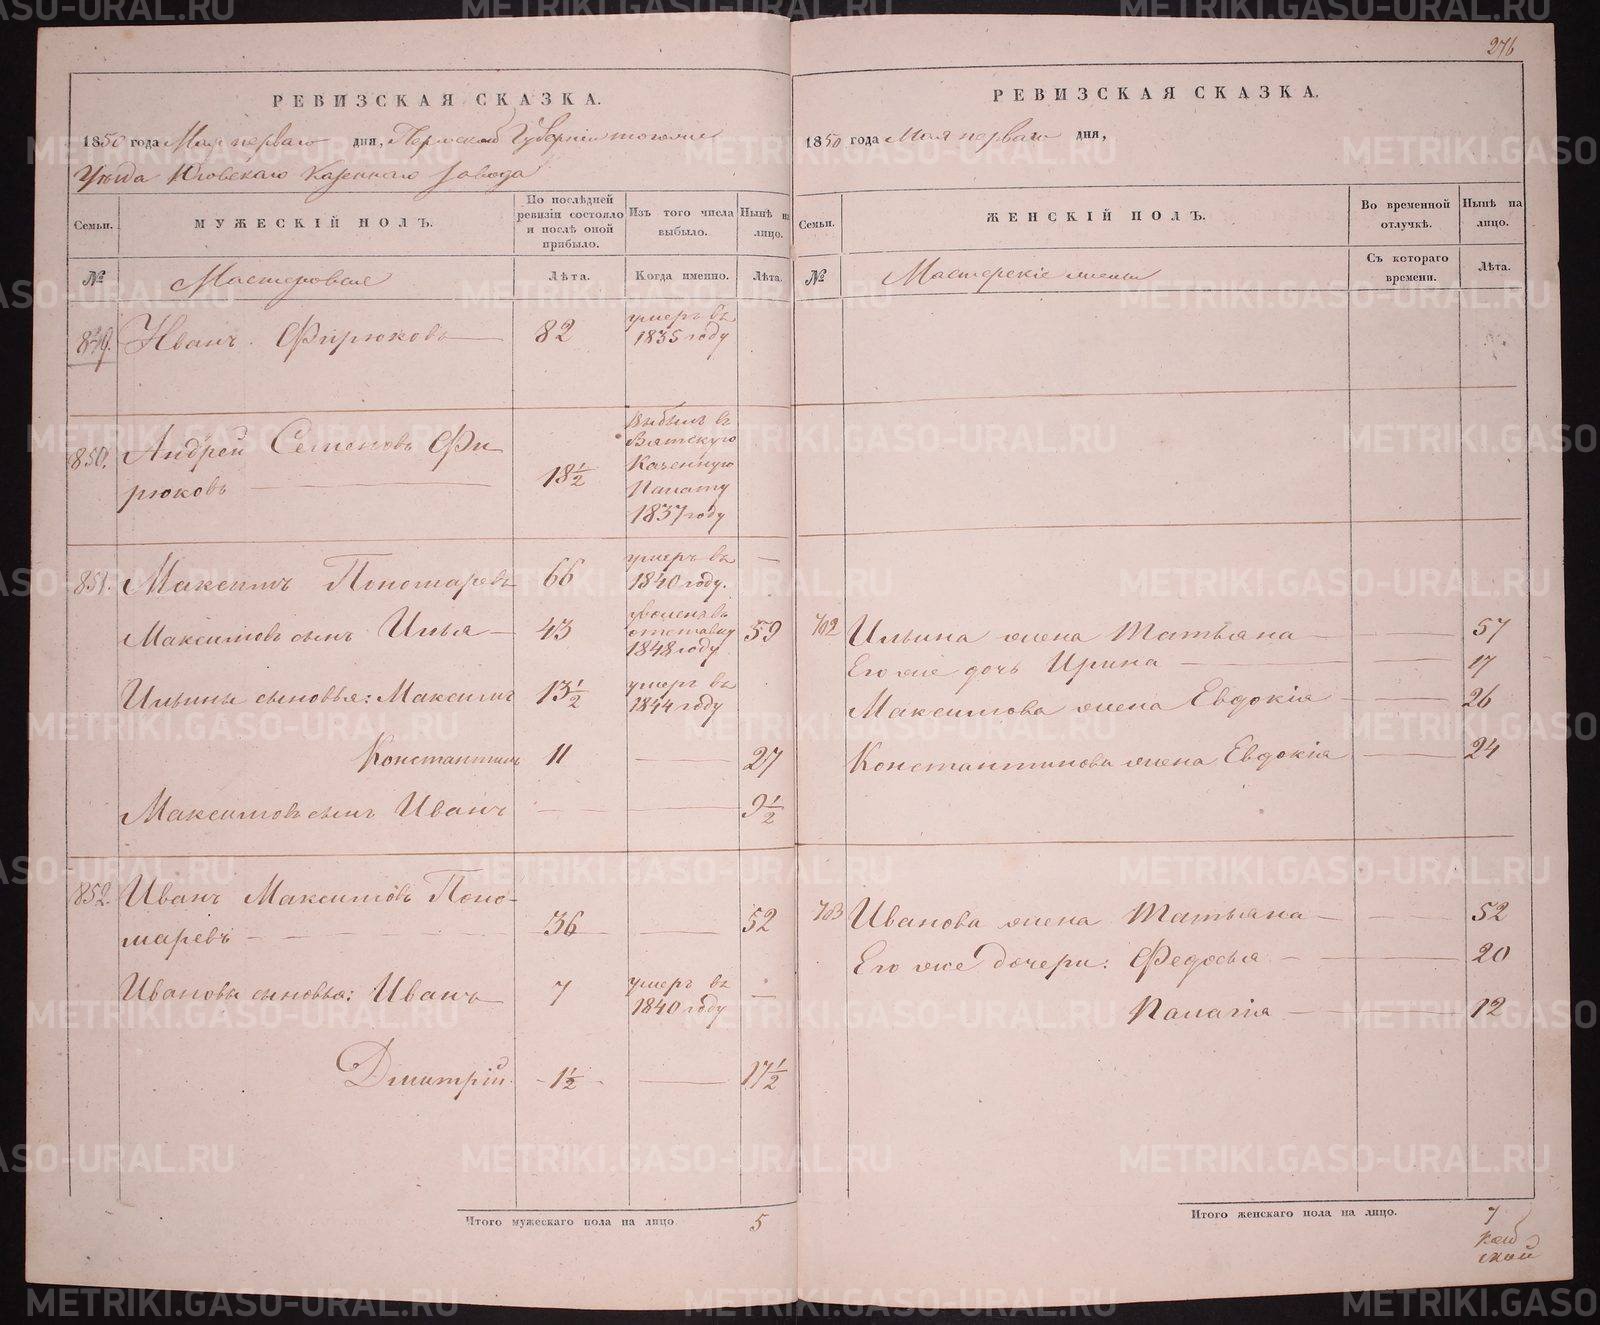 276
РЕВИЗСКАЯ СКАЗКА.
1850 года Мая перваго дня, Пермской Губерніи тогоже
Уѣзда Юговскаго Казеннаго завода
Семьи.
МУЖЕСКІЙ ПОЛЪ.
По послѣдней ревизіи состояло и послѣ оной прибыло.
Изъ того числа выбыло.
Нынѣ на лицо.
№
Мастеровые
Лѣта.
Когда именно.
Лѣта.
849. Иванъ Фирюковъ 82 умеръ въ 1835 году
850. Андрей Семеновъ Фи
рюковъ 18½ Выбылъ въ Вятскую Казенную Палату 1837 году
851. Максимъ Пономаревъ 66 умеръ въ 1840 году.
Максимовъ сынъ Илья 43 уволенъ въ отставку 1848 году 59
Ильины сыновья: Максимъ 13½ умеръ въ 1844 году
Константинъ 11 27
Максимовъ сынъ Иванъ 9½
852. Иванъ Максимовъ Поно-
маревъ 36 52
Ивановы сыновья: Иванъ 7 умеръ въ 1840 году
Дмитрій 1½ 17½
Итого мужескаго пола на лицо 5
РЕВИЗСКАЯ СКАЗКА.
1850 года Мая перваго дня,
Семьи.
ЖЕНСКІЙ ПОЛЪ.
Во временной отлучкѣ.
Нынѣ на лицо.
№
Мастерскіе жены
Съ котораго времени.
Лѣта.
702 Ильина жена Татьяна 57
Его же дочь Ирина 17
Максимова жена Евдокія 26
Константинова жена Евдокія 24
703 Иванова жена Татьяна 52
Его же дочери: Федосья 20
Палагія 12
Итого женскаго пола на лицо. 7
METRIKI.GASO-URAL.RU